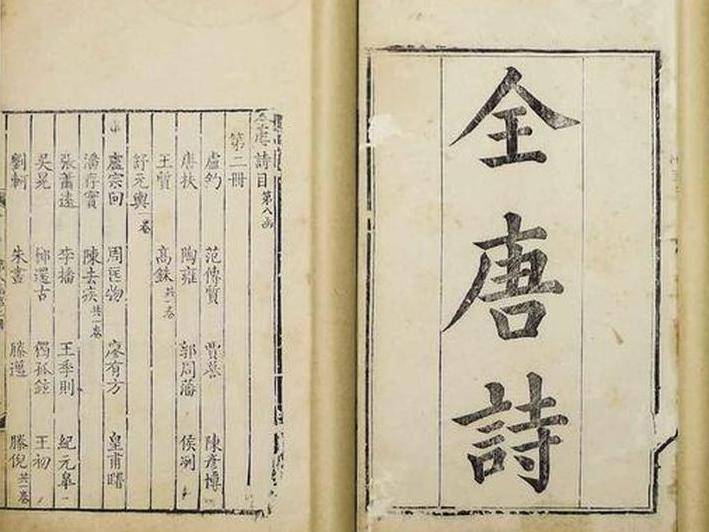 全唐詩
全唐詩目 第八函
第二冊
盧約 范傳質 陳彥博
唐扶 陶雍 郭周藩 侯冽
王質 高銖 共一卷
舒元輿 一卷
盧宗回 周匡物 廖有方 皇甫曙
潘存實 陳去疾 共一卷
張蕭遠 李播 王季則 紀元皋
吳晃 獨孤鉉 王初
劉軻 朱晝 滕邁 滕倪 共一卷